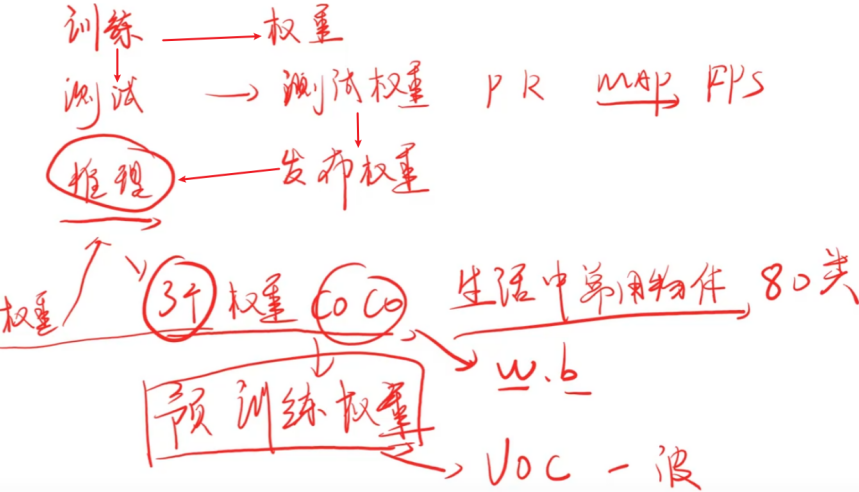 训练 → 权重
测试 → 测试权重 PR MAP FPS
推理 发布权重
权重 3个 权重 COCO 生活中常用物体, 80类
w.b
预训练权重
VOC 一波